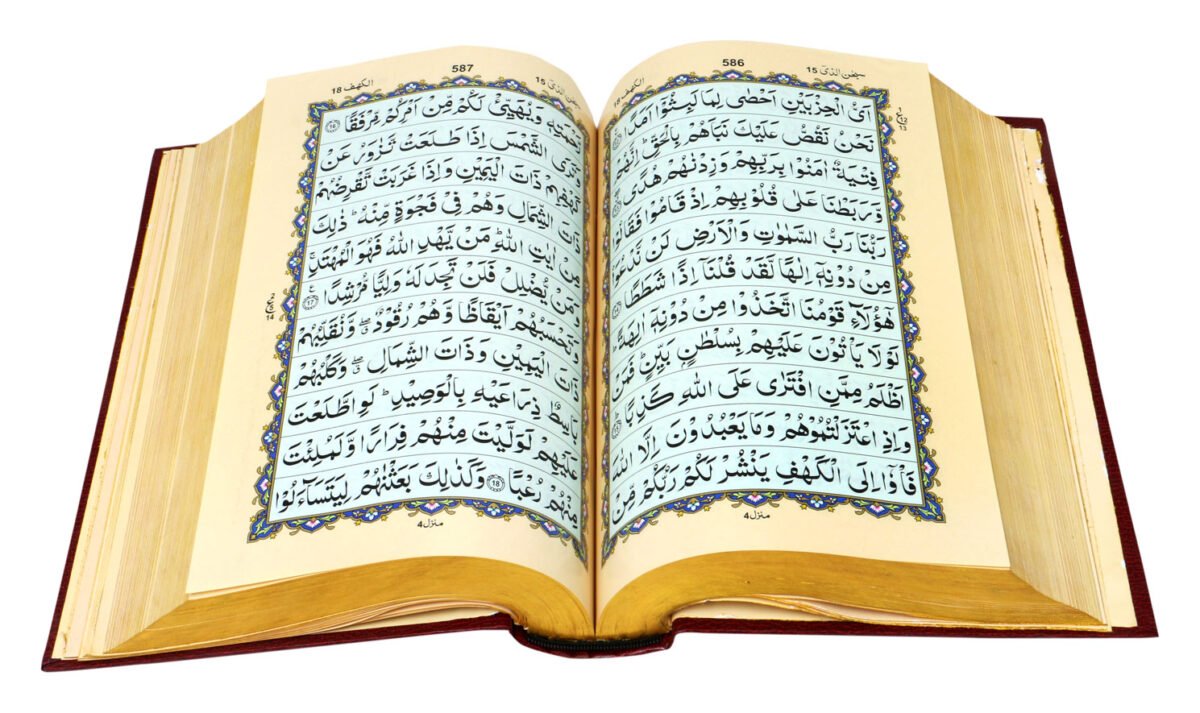 سبحٰن الذیٓ 15 586 الكهف 18
اَيُّ الْحِزْبَيْنِ اَحْصٰى لِمَا لَبِثُوْٓا اَمَدًا
نَحْنُ نَقُصُّ عَلَيْكَ نَبَاَهُمْ بِالْحَقِّ ؕ اِنَّهُمْ
فِتْيَةٌ اٰمَنُوْا بِرَبِّهِمْ وَزِدْنٰهُمْ هُدًى
وَّرَبَطْنَا عَلٰى قُلُوْبِهِمْ اِذْ قَامُوْا فَقَالُوْا
رَبُّنَا رَبُّ السَّمٰوٰتِ وَالْاَرْضِ لَنْ نَّدْعُوَا۟
مِنْ دُوْنِهٖٓ اِلٰهًا لَّقَدْ قُلْنَآ اِذًا شَطَطًا
هٰٓؤُلَآءِ قَوْمُنَا اتَّخَذُوْا مِنْ دُوْنِهٖٓ اٰلِهَةً ؕ
لَوْ لَا يَاْتُوْنَ عَلَيْهِمْ بِسُلْطٰنٍۭ بَيِّنٍ ؕ فَمَنْ
اَظْلَمُ مِمَّنِ افْتَرٰى عَلَى اللّٰهِ كَذِبًا
وَاِذِ اعْتَزَلْتُمُوْهُمْ وَمَا يَعْبُدُوْنَ اِلَّا اللّٰهَ
فَاْوٗٓا اِلَى الْكَهْفِ يَنْشُرْ لَكُمْ رَبُّكُمْ مِّنْ
منزل 4
سبحٰن الذیٓ 15 587 الكهف 18
رَّحْمَتِهٖ وَيُهَيِّئْ لَكُمْ مِّنْ اَمْرِكُمْ مِّرْفَقًا 16
وَتَرَى الشَّمْسَ اِذَا طَلَعَتْ تَّزٰوَرُ عَنْ
كَهْفِهِمْ ذَاتَ الْيَمِيْنِ وَاِذَا غَرَبَتْ تَّقْرِضُهُمْ
ذَاتَ الشِّمَالِ وَهُمْ فِيْ فَجْوَةٍ مِّنْهُ ؕ ذٰلِكَ
مِنْ اٰيٰتِ اللّٰهِ ؕ مَنْ يَّهْدِ اللّٰهُ فَهُوَ الْمُهْتَدِ ۚ
وَمَنْ يُّضْلِلْ فَلَنْ تَجِدَ لَهٗ وَلِيًّا مُّرْشِدًا 17
وَتَحْسَبُهُمْ اَيْقَاظًا وَّهُمْ رُقُوْدٌ ۖ وَّنُقَلِّبُهُمْ
ذَاتَ الْيَمِيْنِ وَذَاتَ الشِّمَالِ ۖ وَكَلْبُهُمْ
بَاسِطٌ ذِرَاعَيْهِ بِالْوَصِيْدِ ؕ لَوِ اطَّلَعْتَ
عَلَيْهِمْ لَوَلَّيْتَ مِنْهُمْ فِرَارًا وَّلَمُلِئْتَ
مِنْهُمْ رُعْبًا 18 وَكَذٰلِكَ بَعَثْنٰهُمْ لِيَتَسَآءَلُوْا
منزل 4